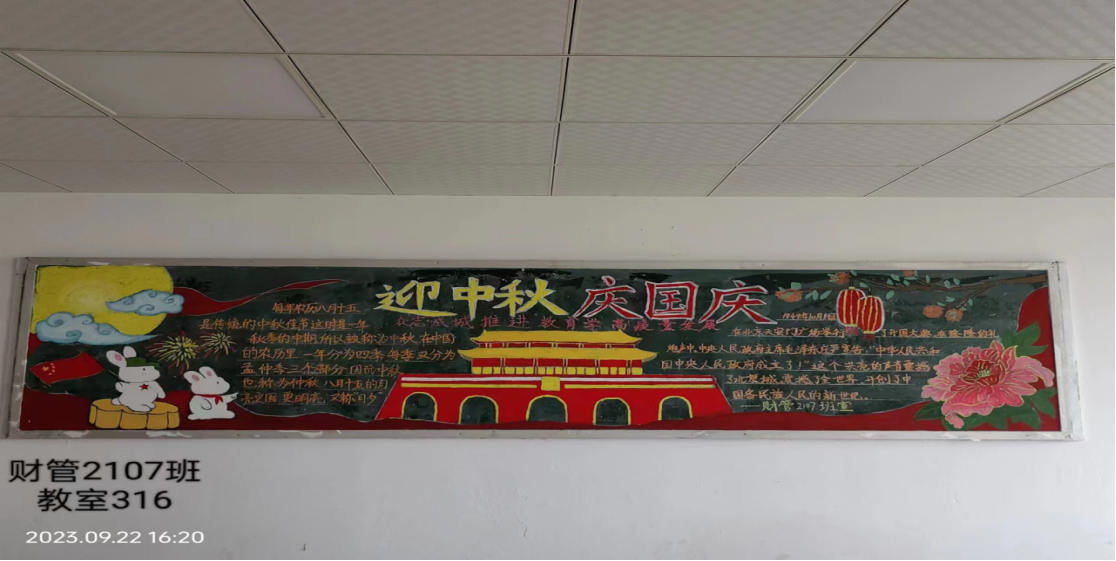 迎中秋 庆国庆
众志成城 推进教育学高质量发展
每年农历八月十五
是传统的中秋佳节这时是一年
秋季的中期,所以被称为中秋,在中国
的农历里,一年分为四季,每季又分为
孟仲季三个部分,因而中秋
也称为仲秋,八月十五的月
亮更圆,更明亮,又称"月夕"
1949年10月1日
在北京天安门广场举行 开国大典,在隆隆的礼
炮声中,中央人民政府主席毛泽东庄严宣告"中华人民共和
国中央人民政府成立了!"这个 亮的声音震撼
了北京城,震撼了全世界,开创了中
国各民族人民的新世纪。
——财管2107班宣
财管2107班
教室316
2023.09.22 16:20